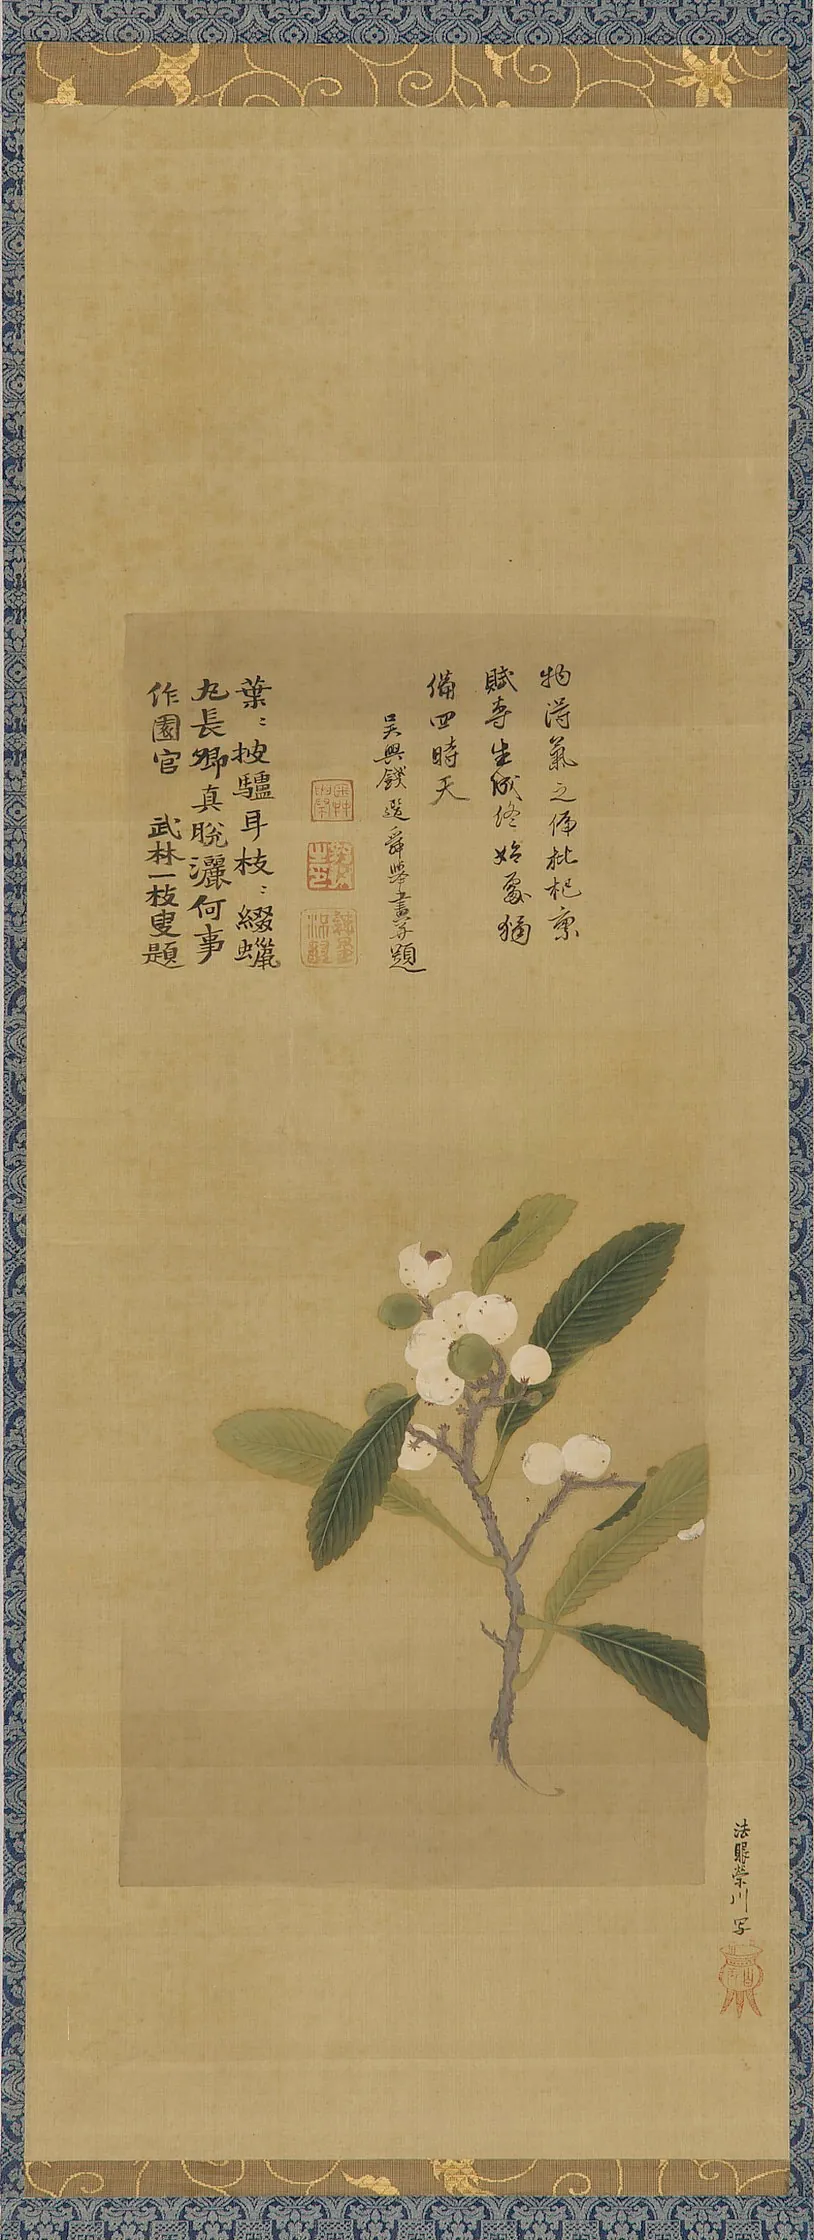 物得氣之偏枇杷稟
賦專生成終始處猶
備四時天
吳興錢選舜舉畫并題
葉〻披驢耳枝〻綴蠟
丸長卿真脫灑何事
作園官 武林一枝叟題
法眼榮川写